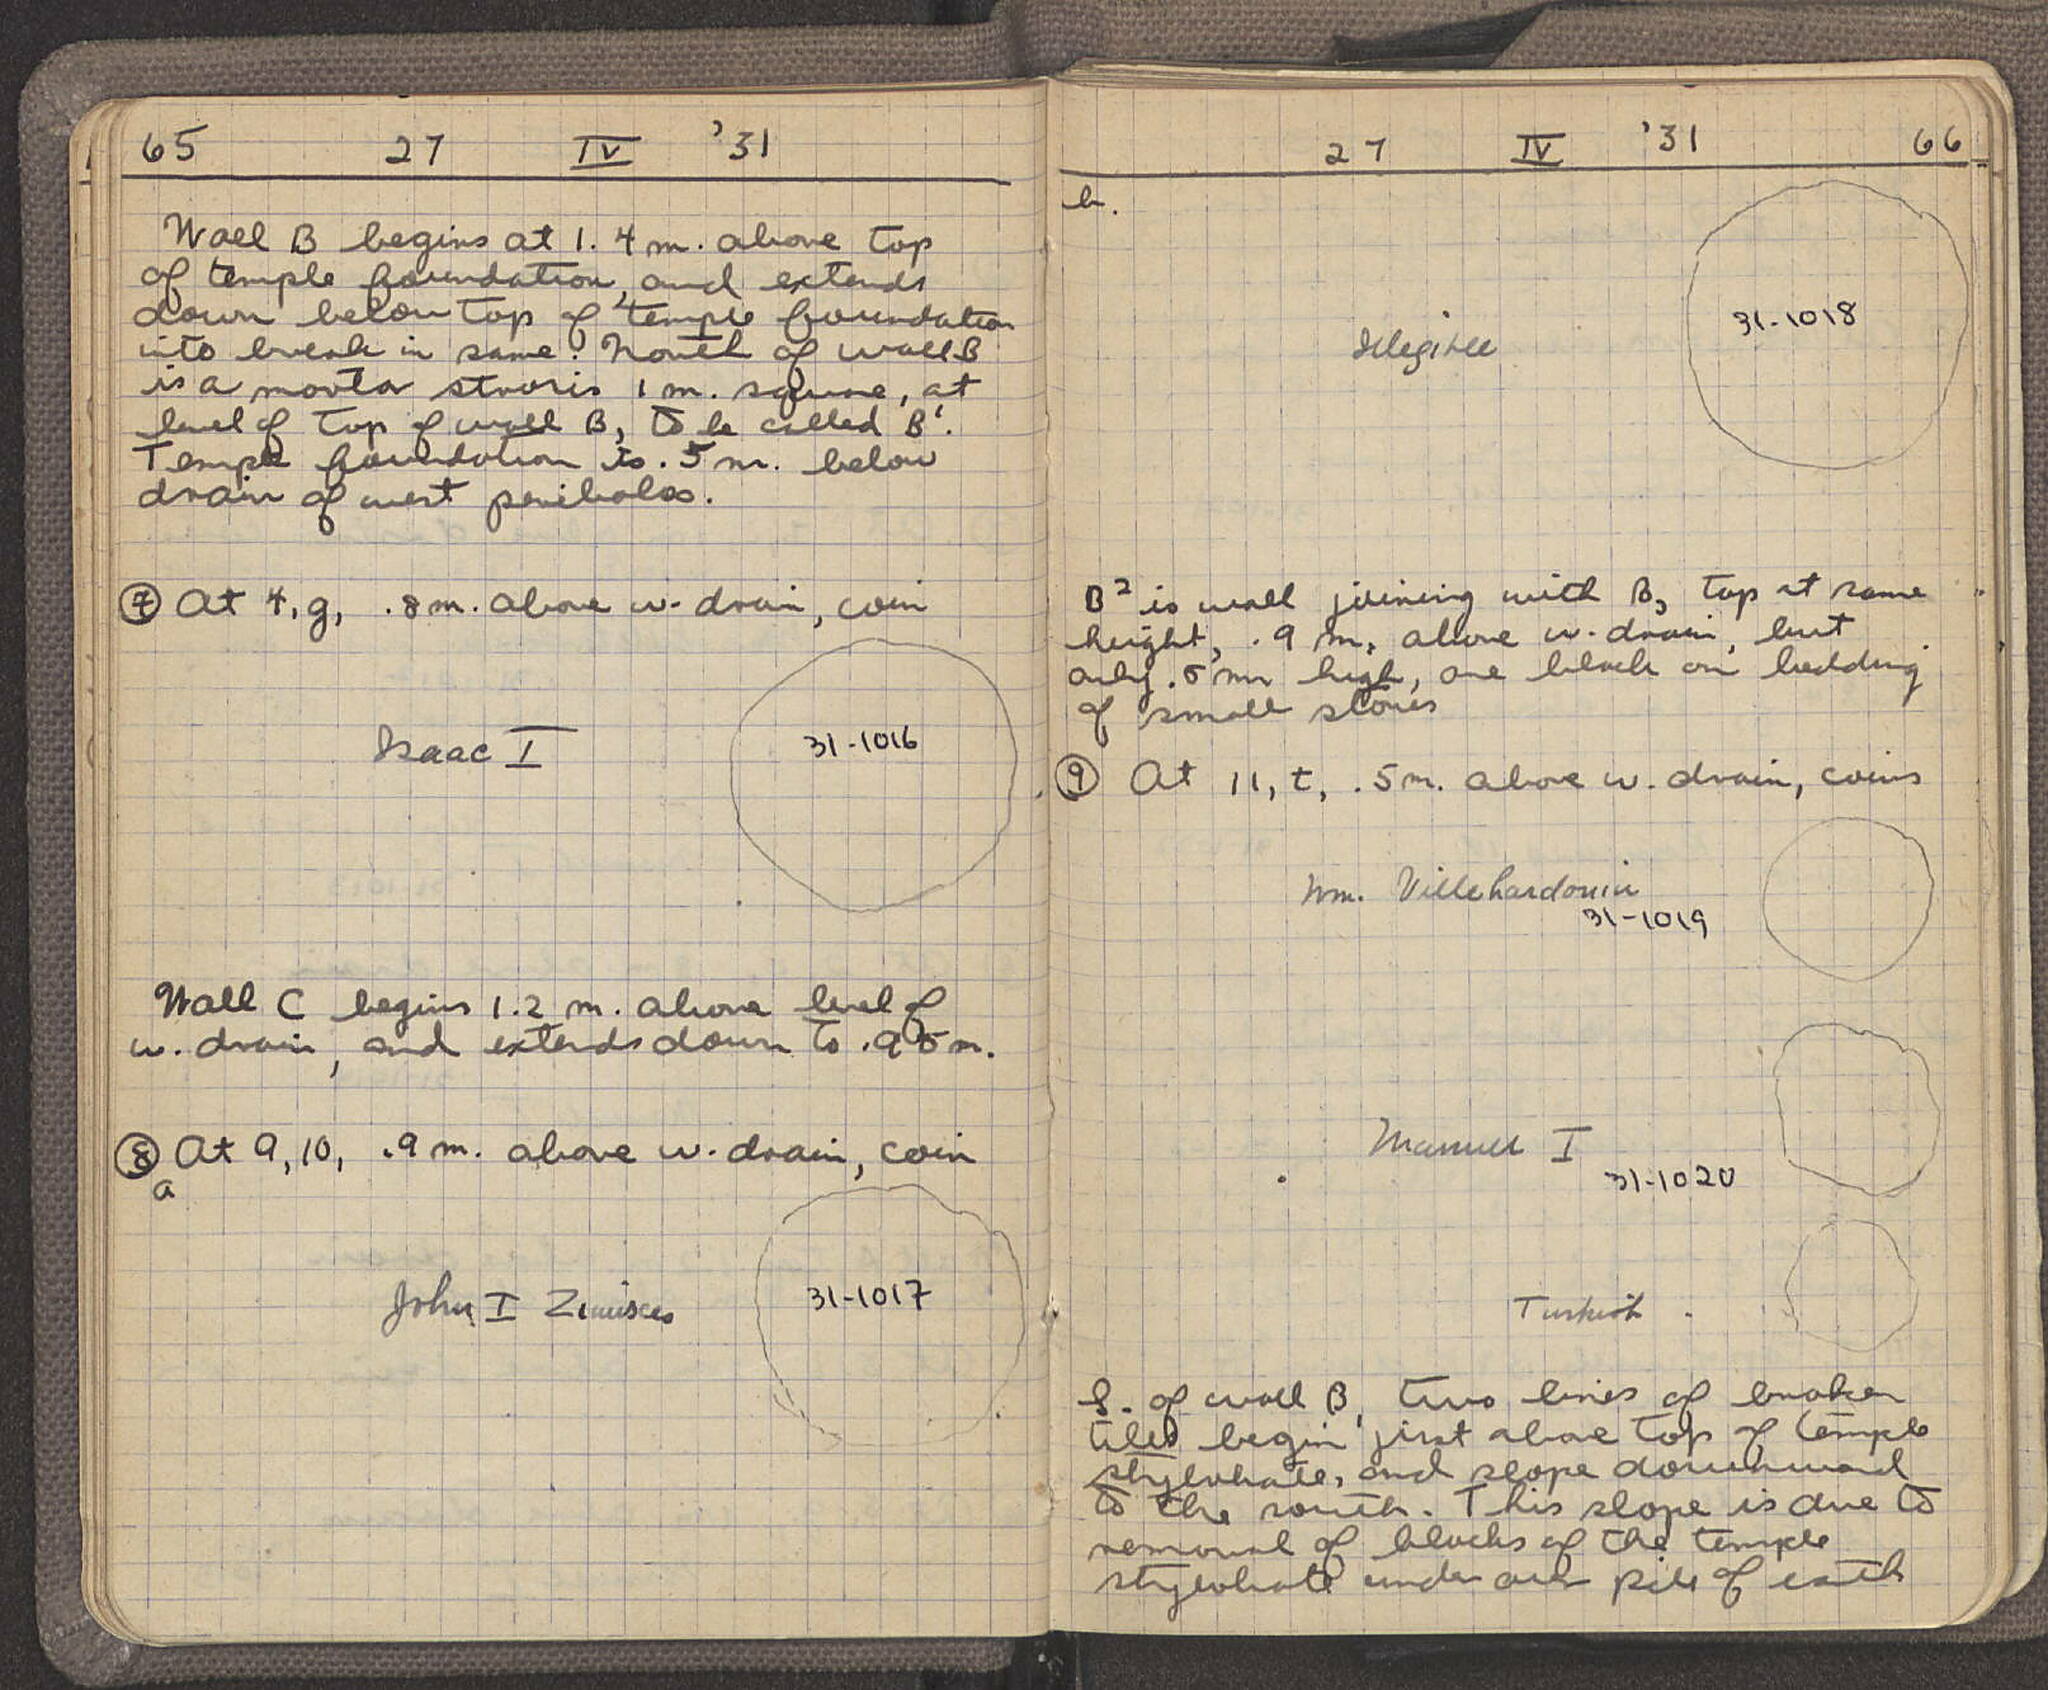 65 27 IV '31
Wall B begins at 1.4 m. above top
of temple foundation, and extends
down below top of temple foundation
into break in same. North of wall B
is a morta stroris 1 m. square, at
level of top of wall B, to be called B'.
Temple foundation is .5 m. below
drain of west peribolos.
⑦ At 4, g, .8 m. above w. drain, coin
Isaac I
31-1016
Wall C begins 1.2 m. above level of
w. drain, and extends down to .95 m.
⑧ At 9, 10, .9 m. above w. drain, coin
a
John I Zimisces
31-1017
27 IV '31 66
b.
31-1018
Illegible
B² is wall joining with B, top at same
height, .9 m. above w. drain, but
only .5 m high, one block on bedding
of small stones
⑨ At 11, t, .5 m. above w. drain, coins
Wm. Villehardouin
31-1019
Manuel I
31-1020
Turkish
S. of wall B, two lines of broken
tiles begin just above top of temple
stylobate, and slope downward
to the south. This slope is due to
removal of blocks of the temple
stylobate under our pile of earth